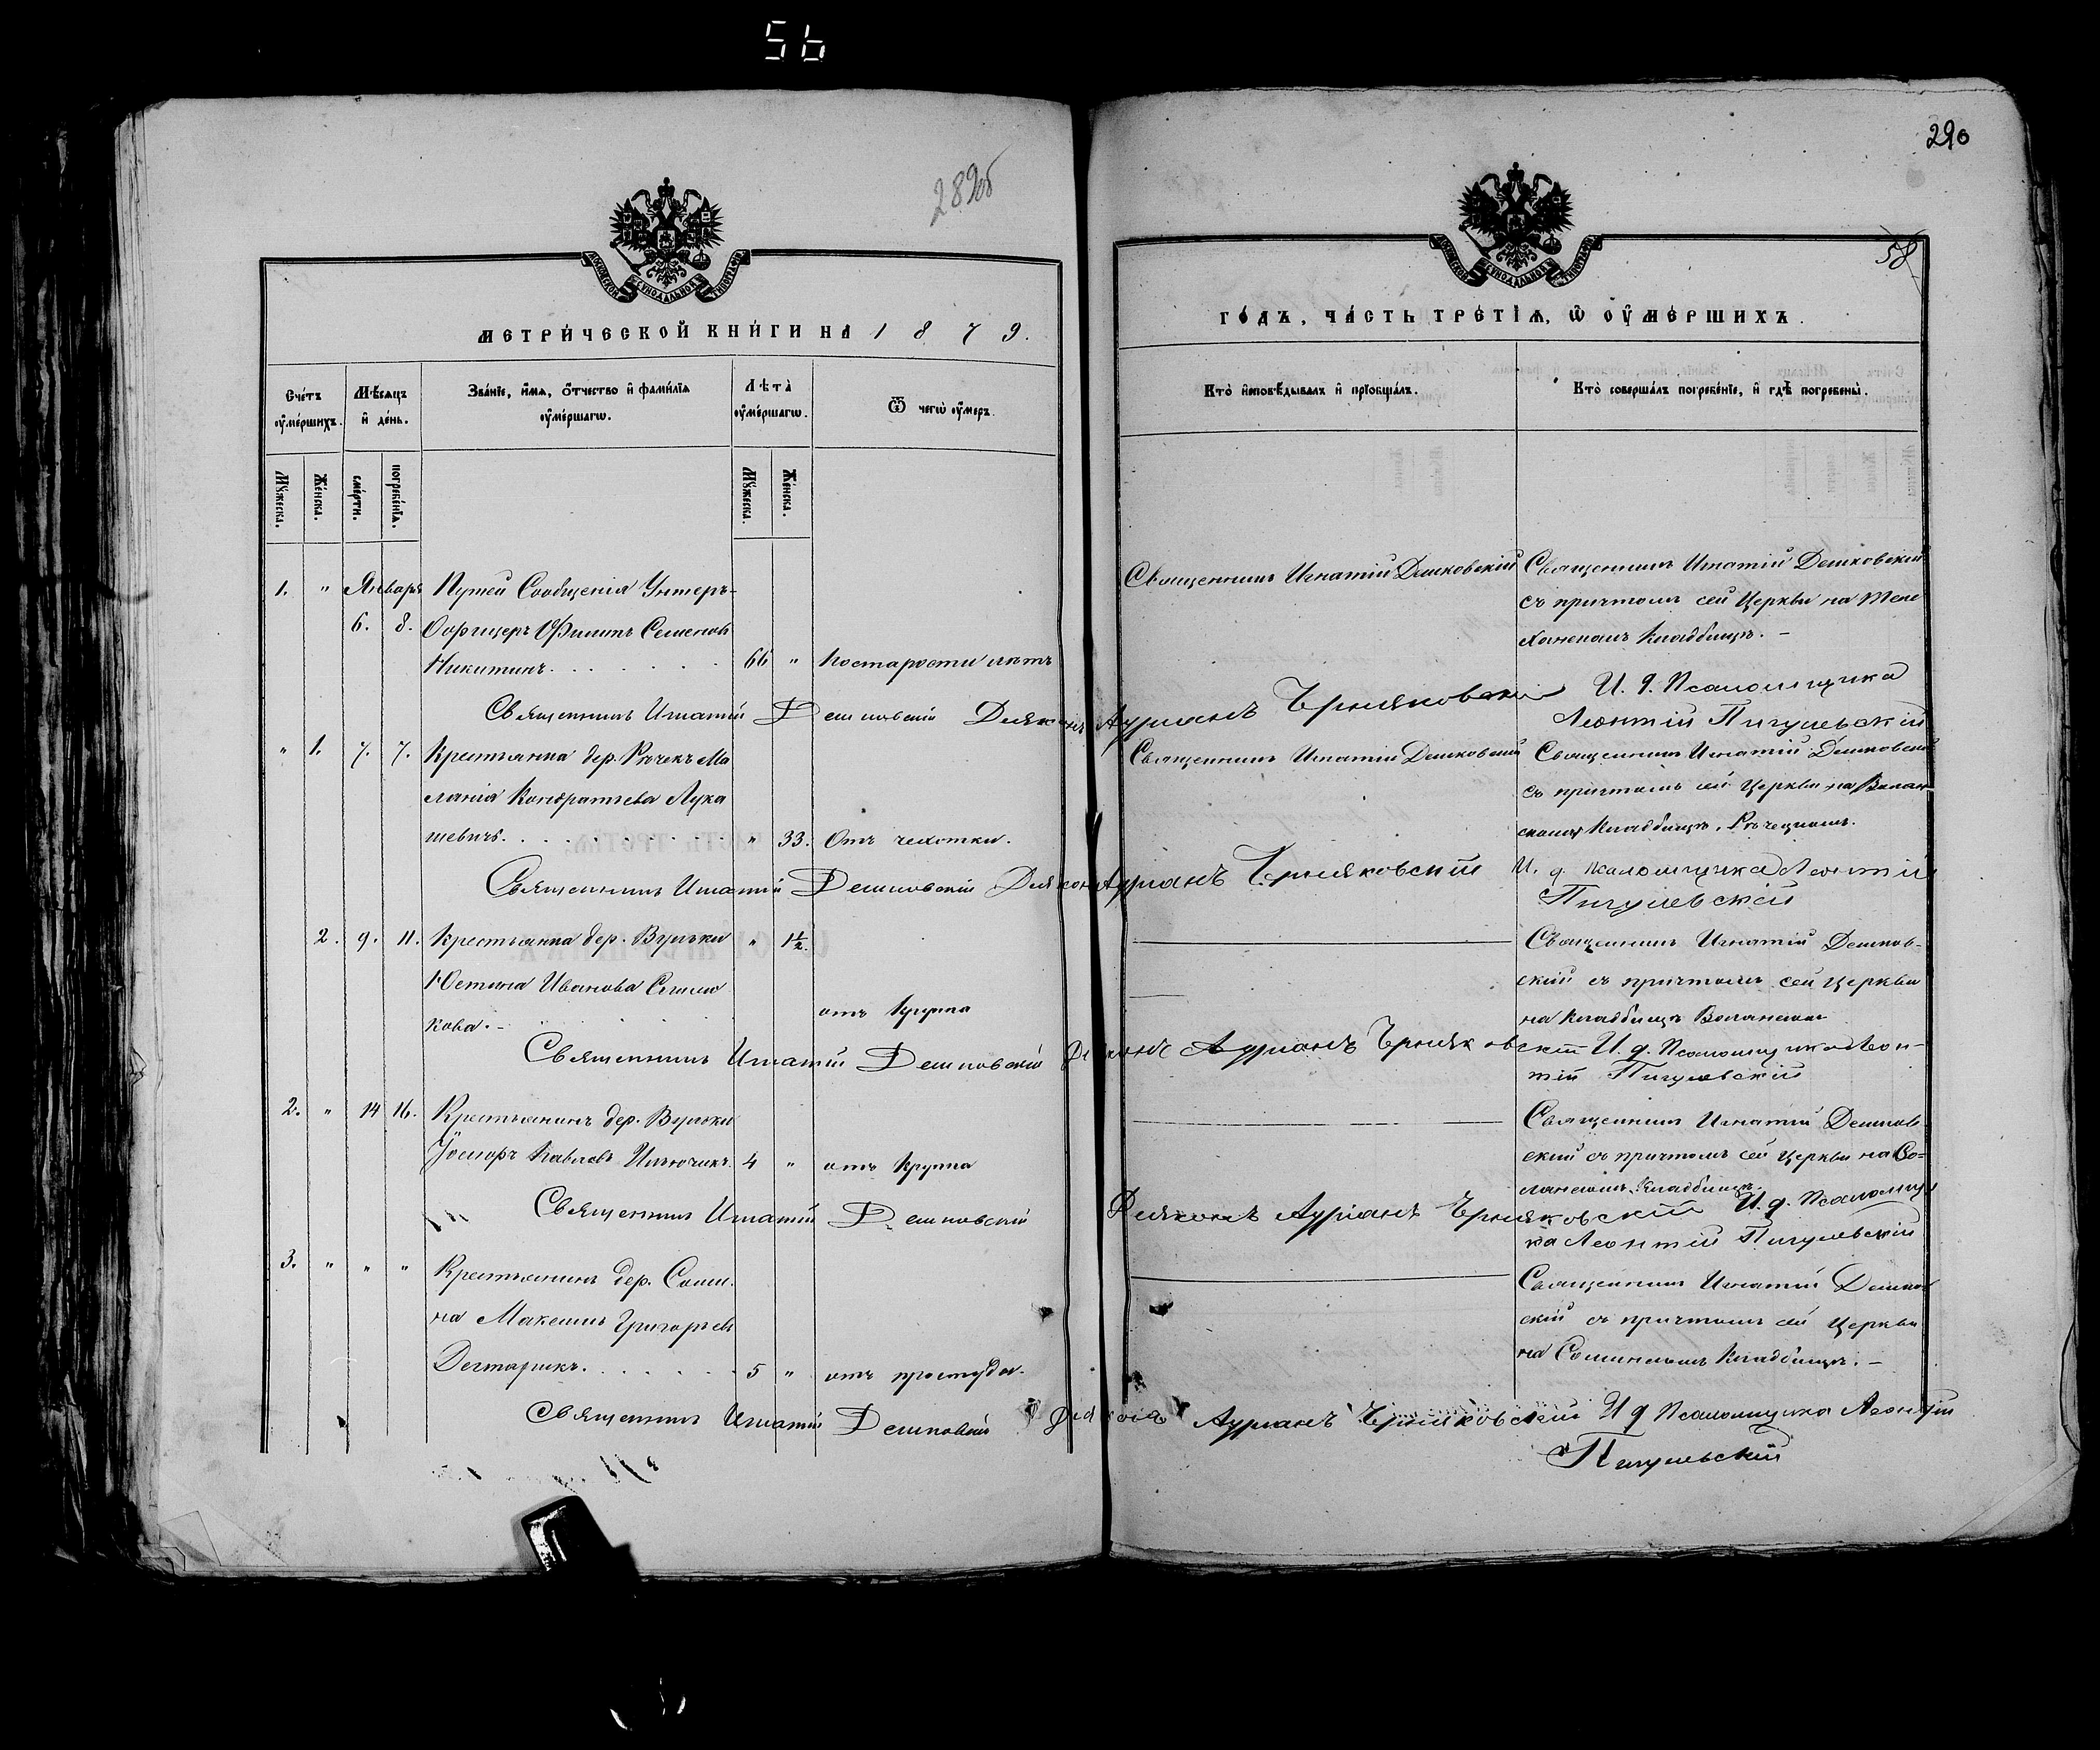 56
289об
290
58
МОСКОВСКОЙ СУНОДАЛЬНОЙ ТИПОГРАФІИ
МОСКОВСКОЙ СУНОДАЛЬНОЙ ТИПОГРАФІИ
МЕТРИ́ЧЕСКОЙ КНИ́ГИ НА 1879.
ГО́ДЪ, ЧА́СТЬ ТРЕ́ТІѦ, Ѡ ОУМЕ́РШИХЪ.
Сче́тъ оумершихъ.
Мѣсяцъ и де́нь.
Зва́ніе, имя, отчество и фами́лія оуме́ршагѡ.
Лѣта̀ оуме́ршагѡ.
Ѿ чегѡ̀ оумеръ.
Кто̀ исповѣ́дывалъ и пріобща́лъ.
Кто̀ соверша́лъ погребе́ніе, и гдѣ̀ погребены̀.
Мꙋжеска.
Женска.
сме́рти.
погребе́нія.
Мꙋжеска.
Женска.
1. " Январь Путей Сообщенія Унтеръ-
6. 8. Офицеръ Филипъ Семеновъ
Никитинъ. 66 " По старости лѣтъ
Священникъ Игнатій Дешковскій
Священникъ Игнатій Дешковскій
съ причтомъ сей Церкви на Теле
ханскомъ Кладбищѣ. –
Священникъ Игнатій Дешковскій Діаконъ Адріанъ Черняковскій И. д. Псаломщика
Леонтій Пигулевскій
" 1. 7. 7. Крестьянка дер. Рѣчекъ Ма
ланія Кондратьева Лука
шевичъ. " 33. Отъ чехотки.
Священникъ Игнатій Дешковскій
Священникъ Игнатій Дешковскій
съ причтомъ сей Церкви на
Кладбищѣ, Рѣчецкомъ.
Священникъ Игнатій Дешковскій Діаконъ Адріанъ Черняковскій И. д. псаломщика Леонтій
Пигулевскій
2. 9. 11. Крестьянка дер. Вульки " 1½.
Юстина Иванова
кова. – отъ Круппа
Священникъ Игнатій Дешков-
скій съ причтомъ сей Церкви
на Кладбищѣ
Священникъ Игнатій Дешковскій Діаконъ Адріанъ Черняковскій И. д. Псаломщика Леон-
тій Пигулевскій
2. " 14 16. Крестьянинъ дер. Вульки
Іосифъ Павловъ Ильючикъ. 4 " отъ Круппа
Священникъ Игнатій Дешков
скій съ причтомъ сей Церкви на Во=
ланскомъ Кладбищѣ.
Священникъ Игнатій Дешковскій Діаконъ Адріанъ Черняковскій И. д. Псаломщи
ка Леонтій Пигулевскій
3. " " " Крестьянинъ дер. Соми.
на Максимъ Григорьевъ
Дегтярикъ. 5 " отъ простуды.
Священникъ Игнатій Дешков
скій съ причтомъ сей Церкви
на Соминскомъ Кладбищѣ. –
Священникъ Игнатій Дешковскій Діаконъ Адріанъ Черняковскій И д Псаломщика Леонтій
Пигулевскій